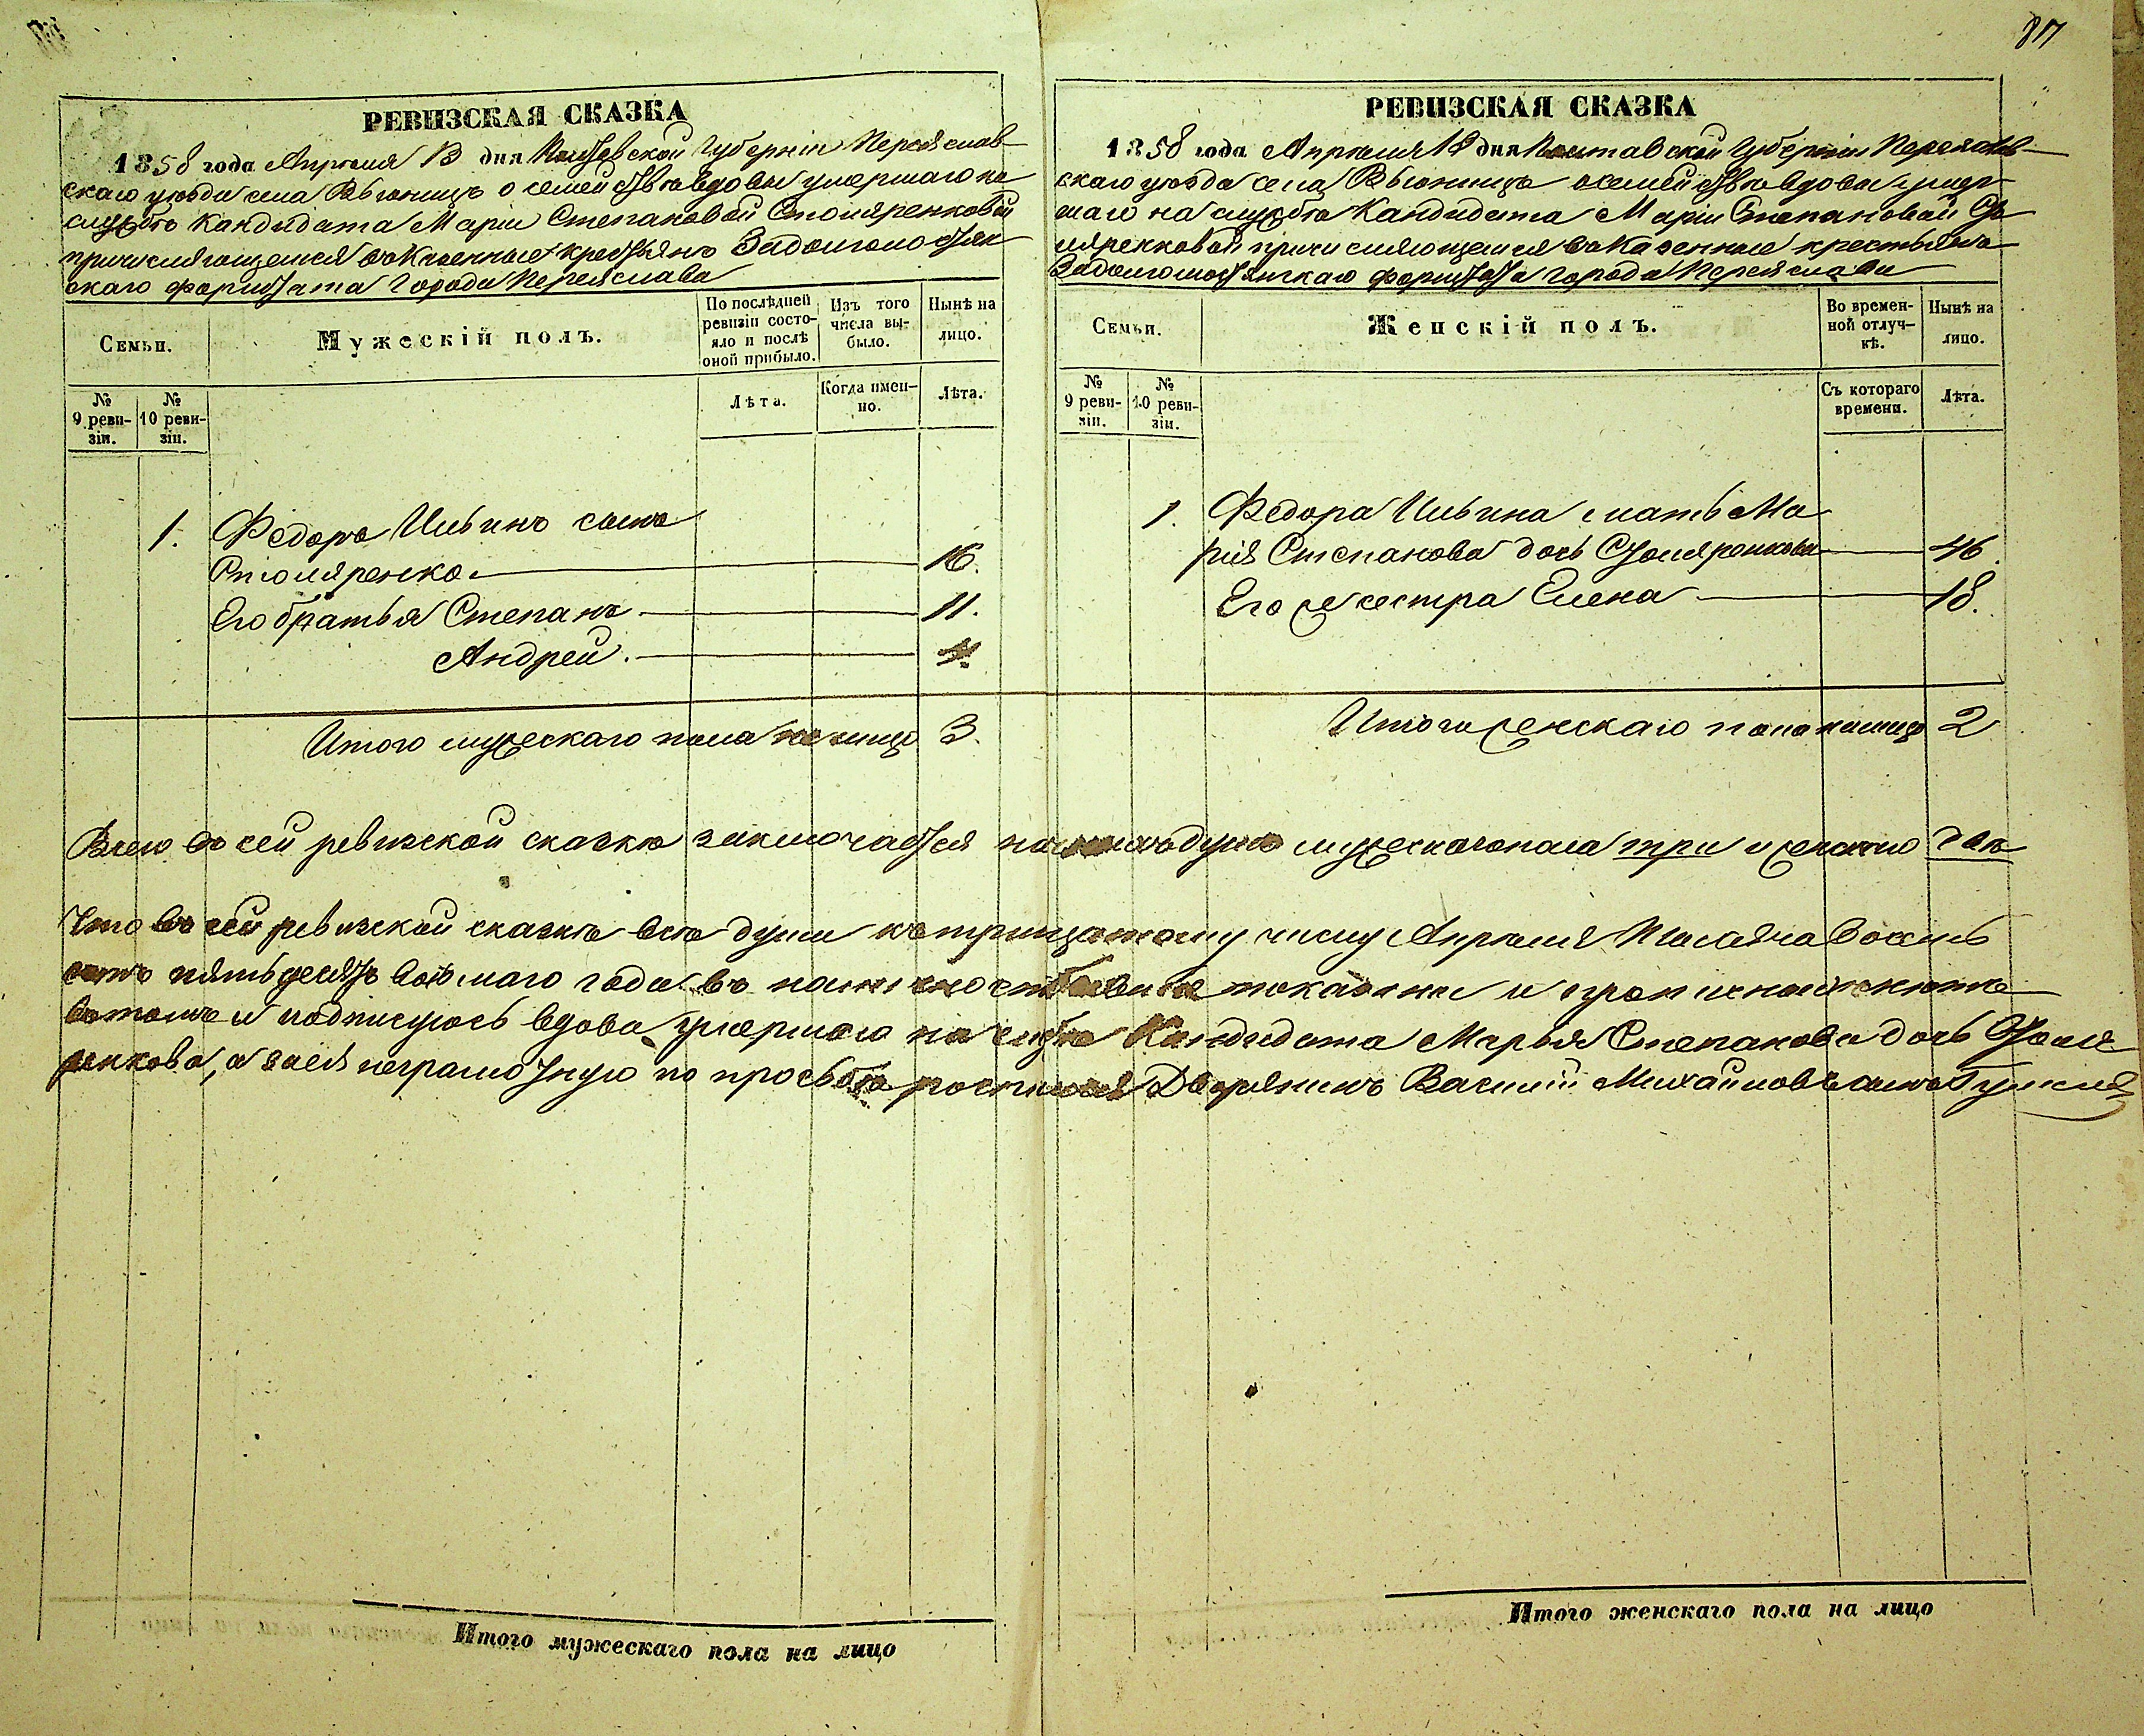 87
РЕВИЗСКАЯ СКАЗКА
1858 года Апреля 18 дня Полтавской Губерніи Переяслав-
скаго уезда села Вьюницъ о семействѣ вдовы умершаго на
службѣ Кандидата Маріи Степановой Столяренковой
причисляющемся въ Казенные крестьянъ Задолгомостян
скаго форштата Города Переяслава
Семьи.
Мужескій полъ.
По послѣдней ревизіи состо-
яло и послѣ оной прибыло.
Изъ того числа вы-
было.
Нынѣ на лицо.
№ 9 реви-
зіи.
№ 10 реви-
зіи.
Лѣта.
Когда имен-
но.
Лѣта.
1. Федоръ Ильинъ сынъ
Столяренко 16.
Его братья Степанъ 11.
Андрей. 4.
Итого мужескаго пола на лицо 3.
РЕВИЗСКАЯ СКАЗКА
1858 года Апреля 18 дня Полтавской Губерніи Переяслав-
скаго уѣзда села Вьюницъ о семействѣ вдовы умер-
шаго на службѣ Кандидата Маріи Степановой Сто
ляренковой причисляющемся въ Казенные крестьянъ
Задолгомостянскаго форштата города Переяслава
Семьи.
Женскій полъ.
Во времен-
ной отлуч-
кѣ.
Нынѣ на лицо.
№ 9 реви-
зіи.
№ 10 реви-
зіи.
Съ котораго времени.
Лѣта.
1. Федора Ильина мать Ма
рія Степанова дочь Столяренкова 46.
Его же сестра Елена 18.
Итого женскаго пола на лицо 2
Всего въ сей ревизской сказкѣ заключается душъ мужескаго пола три и женскаго двѣ
Что въ сей ревизской сказкѣ всѣ души къ тридцатому числу Апреля Тысяча восемь
сотъ пятьдесятъ восьмаго года въ показаны и
въ томъ и подписуюсь вдова умершаго на службѣ Кандидата Марья Степанова дочь Столя
ренкова, а за нея неграмотную по прозьбѣ росписался Дворянинъ Василій Михайловъ сынъ
Итого мужескаго пола на лицо
Итого женскаго пола на лицо